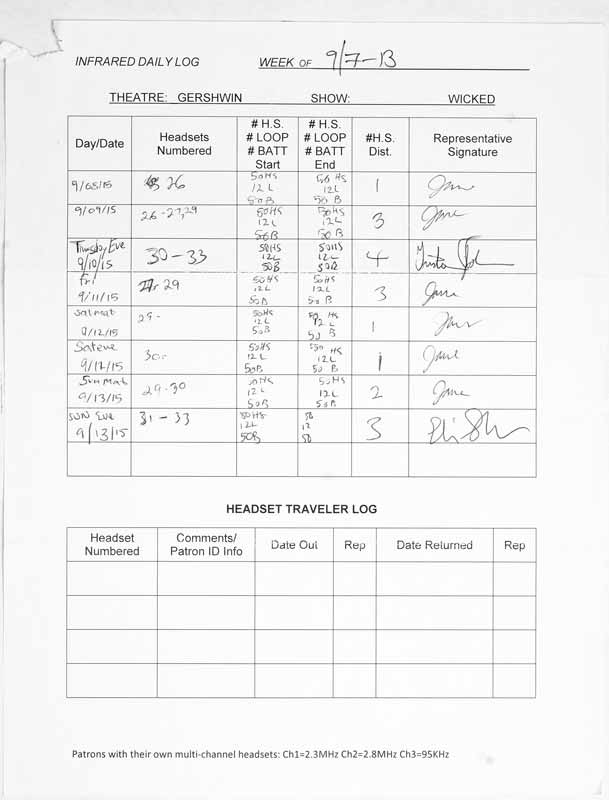 INFRARED DAILY LOG WEEK OF 9/7-13
THEATRE: GERSHWIN SHOW: WICKED
Day/Date
Headsets
Numbered
# H.S.
# LOOP
# BATT
Start
# H.S.
# LOOP
# BATT
End
#H.S.
Dist.
Representative
Signature
9/08/15
26
50HS
12 L
50B
50 HS
12L
50 B
1
Jane
9/09/15
26-27,29
50HS
12L
50B
50HS
12L
50 B
3
Jane
Thursday Eve
9/10/15
30-33
50HS
12L
50B
50HS
12L
50B
4
Fri
9/11/15
29
50HS
12L
50B
50HS
12L
50 B
3
Jane
Satmat
9/12/15
29-
50HS
12L
50B
HS
12 L
50 B
1
Jane
Sateve
9/12/15
30-
50HS
12L
50B
50 HS
12L
50 B
1
Jane
Sun Mat
9/13/15
29-30
50HS
12L
50B
50HS
12L
50 B
2
Jane
SUN Eve
9/13/15
31-33
50HS
12L
50B
50
12
50
3
HEADSET TRAVELER LOG
Headset
Numbered
Comments/
Patron ID Info
Date Out
Rep
Date Returned
Rep
Patrons with their own multi-channel headsets: Ch1=2.3MHz Ch2=2.8MHz Ch3=95KHz